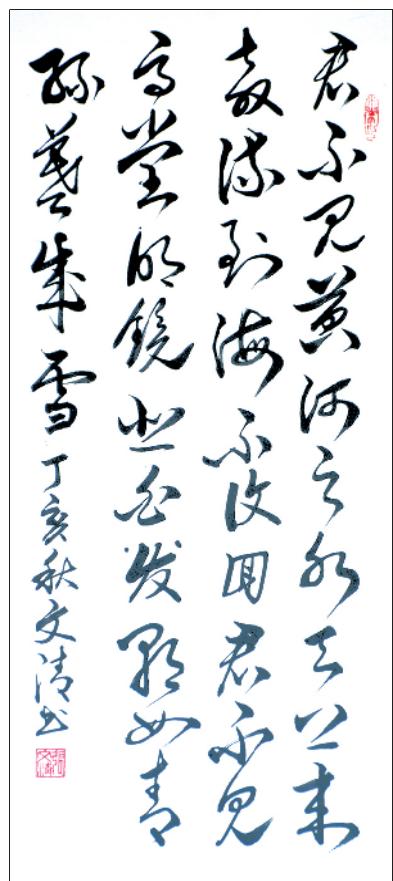 君不见黄河之水天上来
奔流到海不复回君不见
高堂明镜悲白发朝如青
丝暮成雪丁亥秋文清书